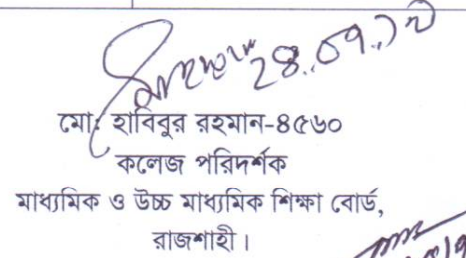 মোঃ হাবিবুর রহমান-৪৫৬০
কলেজ পরিদর্শক
মাধ্যমিক ও উচ্চ মাধ্যমিক শিক্ষা বোর্ড,
রাজশাহী।